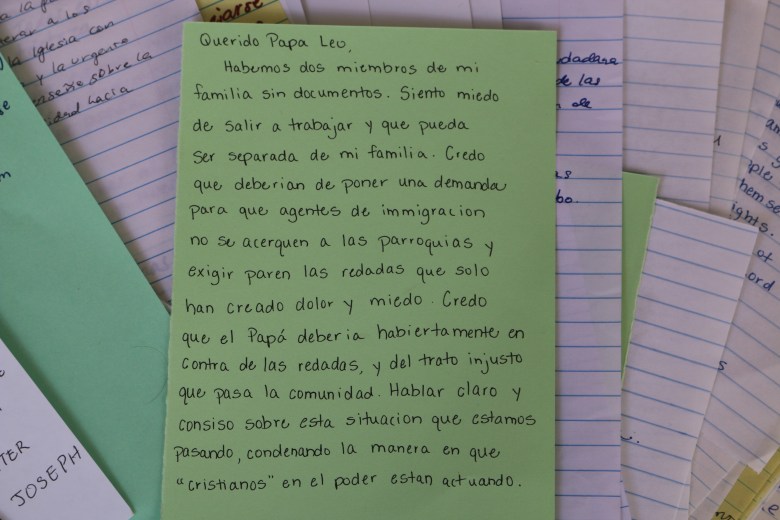 Querido Papa Leo,
Habemos dos miembros de mi
familia sin documentos. Siento miedo
de salir a trabajar y que pueda
ser separada de mi familia. Credo
que deberian de poner una demanda
para que agentes de immigracion
no se acerquen a las parroquias y
exigir paren las redadas que solo
han creado dolor y miedo. Credo
que el Papá deberia habiertamente en
contra de las redadas, y del trato injusto
que pasa la comunidad. Hablar claro y
consiso sobre esta situacion que estamos
pasando, condenando la manera en que
"cristianos" en el poder estan actuando.
la Iglesia con
y la urgente
sobre la
hacia
de las
de
bo.
ights.
ord
TER
JOSEPH